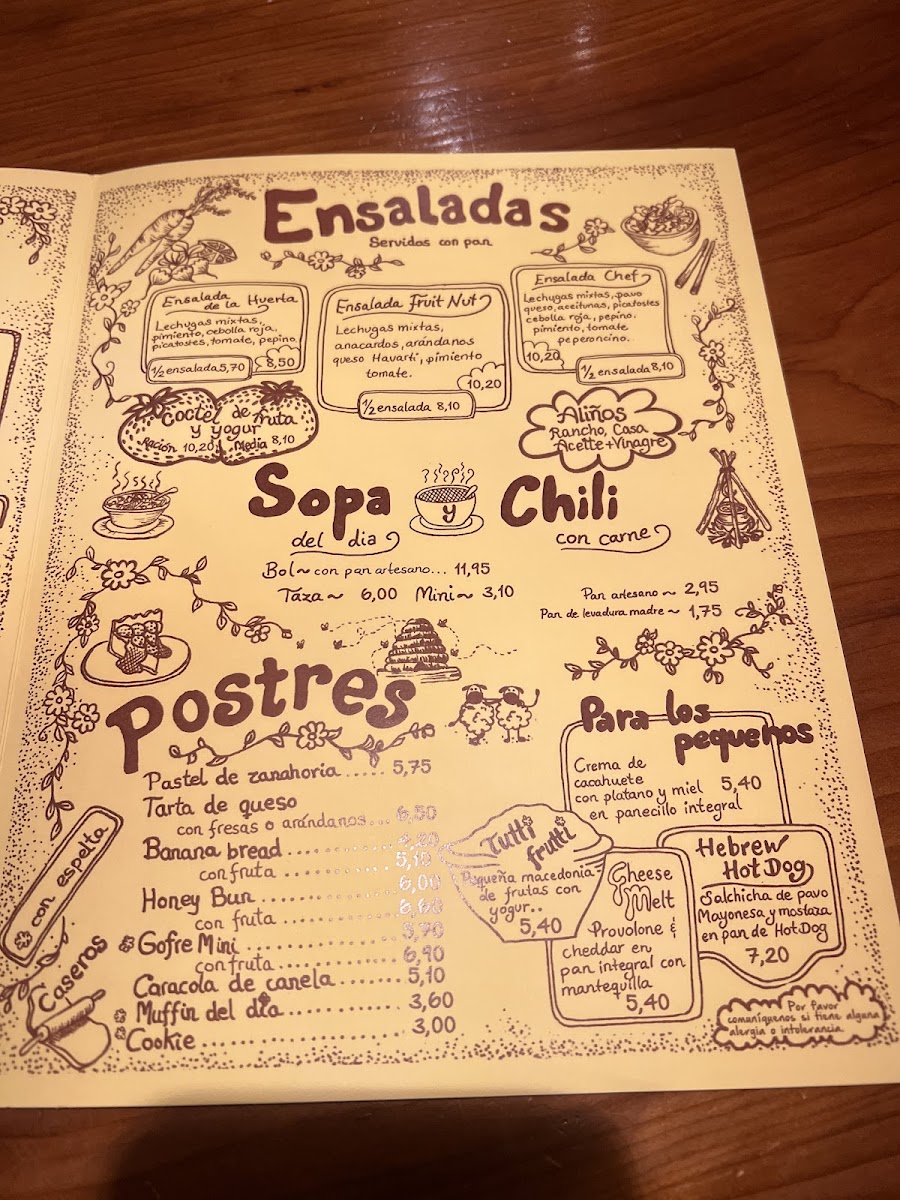 Ensaladas
Servidas con pan
Ensalada
de la Huerta
Lechugas mixtas,
pimiento, cebolla roja,
picatostes, tomate, pepino.
8,50
1/2 ensalada 5,70
Ensalada Fruit Nut
Lechugas mixtas,
anacardos, arándanos
queso Havarti, pimiento
tomate.
10,20
1/2 ensalada 8,10
Ensalada Chef
Lechugas mixtas, pavo
queso, aceitunas, picatostes
cebolla roja, pepino.
pimiento, tomate
peperoncino.
10,20
1/2 ensalada 8,10
Coctel de fruta
y yogur
Ración 10,20 Media 8,10
Aliños
Rancho, Casa
Aceite + Vinagre
Sopa y Chili
del dia
con carne
Bol ~ con pan artesano... 11,95
Táza ~ 6,00 Mini ~ 3,10
Pan artesano ~ 2,95
Pan de levadura madre ~ 1,75
Postres
Pastel de zanahoria ..... 5,75
Tarta de queso
con fresas o arándanos... 6,50
Banana bread .............. 4,20
con fruta .............. 5,10
Honey Bun ................ 6,00
con fruta .............. 6,60
Gofre Mini .................. 5,70
con fruta ................ 6,90
Caracola de canela ........ 5,10
Muffin del día ............. 3,60
Cookie ........................ 3,00
con espelta
Caseros
Para los
pequeños
Crema de
cacahuete
con platano y miel 5,40
en panecillo integral
Tutti
frutti
Pequeña macedonia
de frutas con
yogur..
5,40
Cheese
Melt
Provolone &
cheddar en
pan integral con
mantequilla
5,40
Hebrew
Hot Dog
Salchicha de pavo
Mayonesa y mostaza
en pan de Hot Dog
7,20
Por favor
comuníquenos si tiene alguna
alergia o intolerancia.